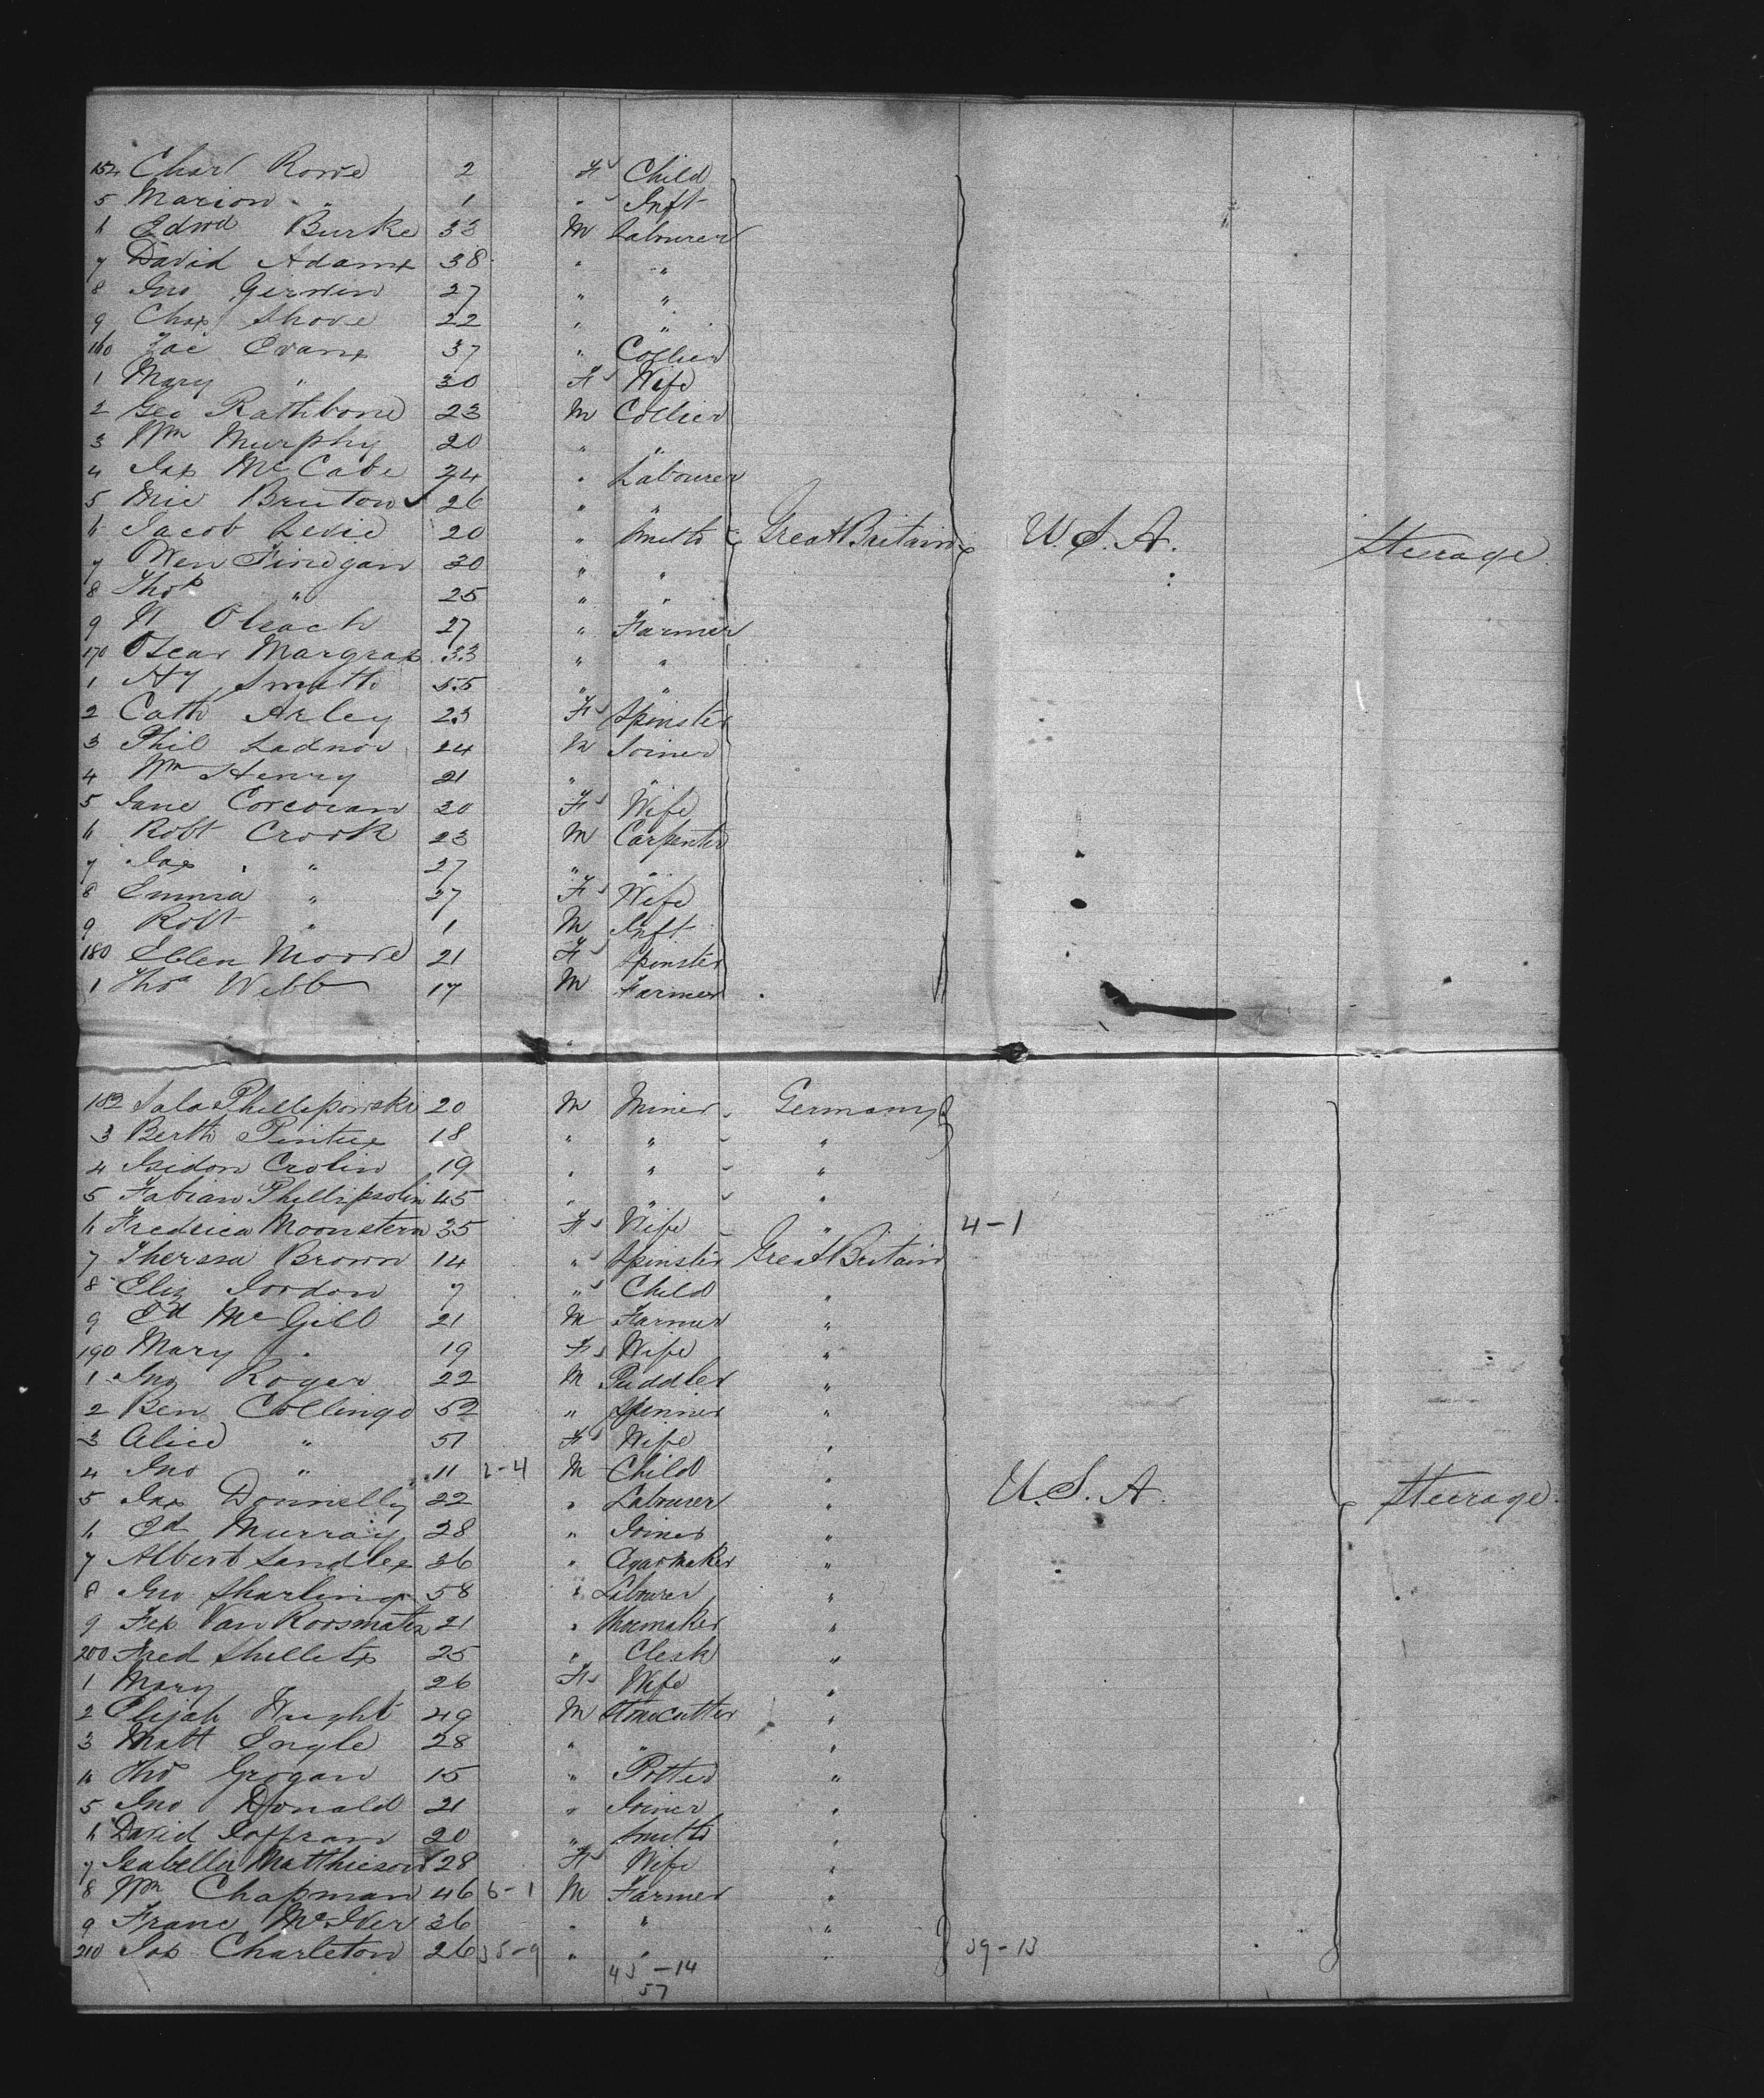 154 Charl Rowe 2 F Child
5 Marion " 1 " Inft
6 Edwd Burke 33 M Labourer
7 David Adams 38 " "
8 Jno Girwin 27 " "
9 Chas Shore 22 " "
160 Zac Evans 37 " Collier
1 Mary " 30 F Wife
2 Geo Rathbone 23 M Collier
3 Wm Murphy 20 " "
4 Jas McCabe 24 " Labourer
5 Mic Bruton 26 " "
6 Jacob Levie 20 " Smith Great Britain U.S.A. Steerage
7 Wen Finegan 30 " "
8 Thos " 25 " "
9 27 " Farmer
170 Oscar Margras 33 " "
1 Hy Smith 55 " "
2 Cath Arley 23 F Spinster
3 Phil Ladnor 24 M Joiner
4 Wm Henry 21 " "
5 Jane Corcoran 30 F Wife
6 Robt Crook 23 M Carpenter
7 Jas " 27 " "
8 Emma " 27 F Wife
9 Robt " 1 M Inft
180 Ellen Moore 21 F Spinster
1 Thos Webb 17 M Farmer
182 Sala Phillipowski 20 M Miner Germany
3 Berth Pintus 18 " " "
4 Isidon Crolin 19 " " "
5 Fabian Phillipsolin 45 " " "
6 Fredrica Moonstern 35 F Wife " 4-1
7 Theressa Brown 14 " Spinster Great Britain
8 Eliz Jordon 7 " Child "
9 Ed McGill 21 M Farmer "
190 Mary " 19 F Wife "
1 Jno Roger 22 M Puddler "
2 Ben Collinge 52 " Spinner "
3 Alice " 51 F Wife "
4 Jno " 11 2-4 M Child "
5 Jas Donnelly 22 " Labourer " U.S.A. Steerage
6 Ed Murray 28 " Joiner "
7 Albert Sandles 36 " Cigarmaker "
8 Jno Sharling 58 " Labourer "
9 Fex Van Roosmaten 21 " Shoemaker "
200 Fred Shillets 25 " Clerk "
1 Mary 26 F Wife "
2 Elijah Wright 49 M Stonecutter "
3 Matt Engle 28 " " "
4 Thos Grogan 15 " Potter "
5 Jno Donald 21 " Joiner "
6 David Joffran 20 " Smith "
7 Isabella Matthieson 28 F Wife "
8 Wm Chapman 46 6-1 M Farmer "
9 Franc McIver 36 " " "
210 Jas Charleton 26 35-9 " " " 39-13
43-14
57